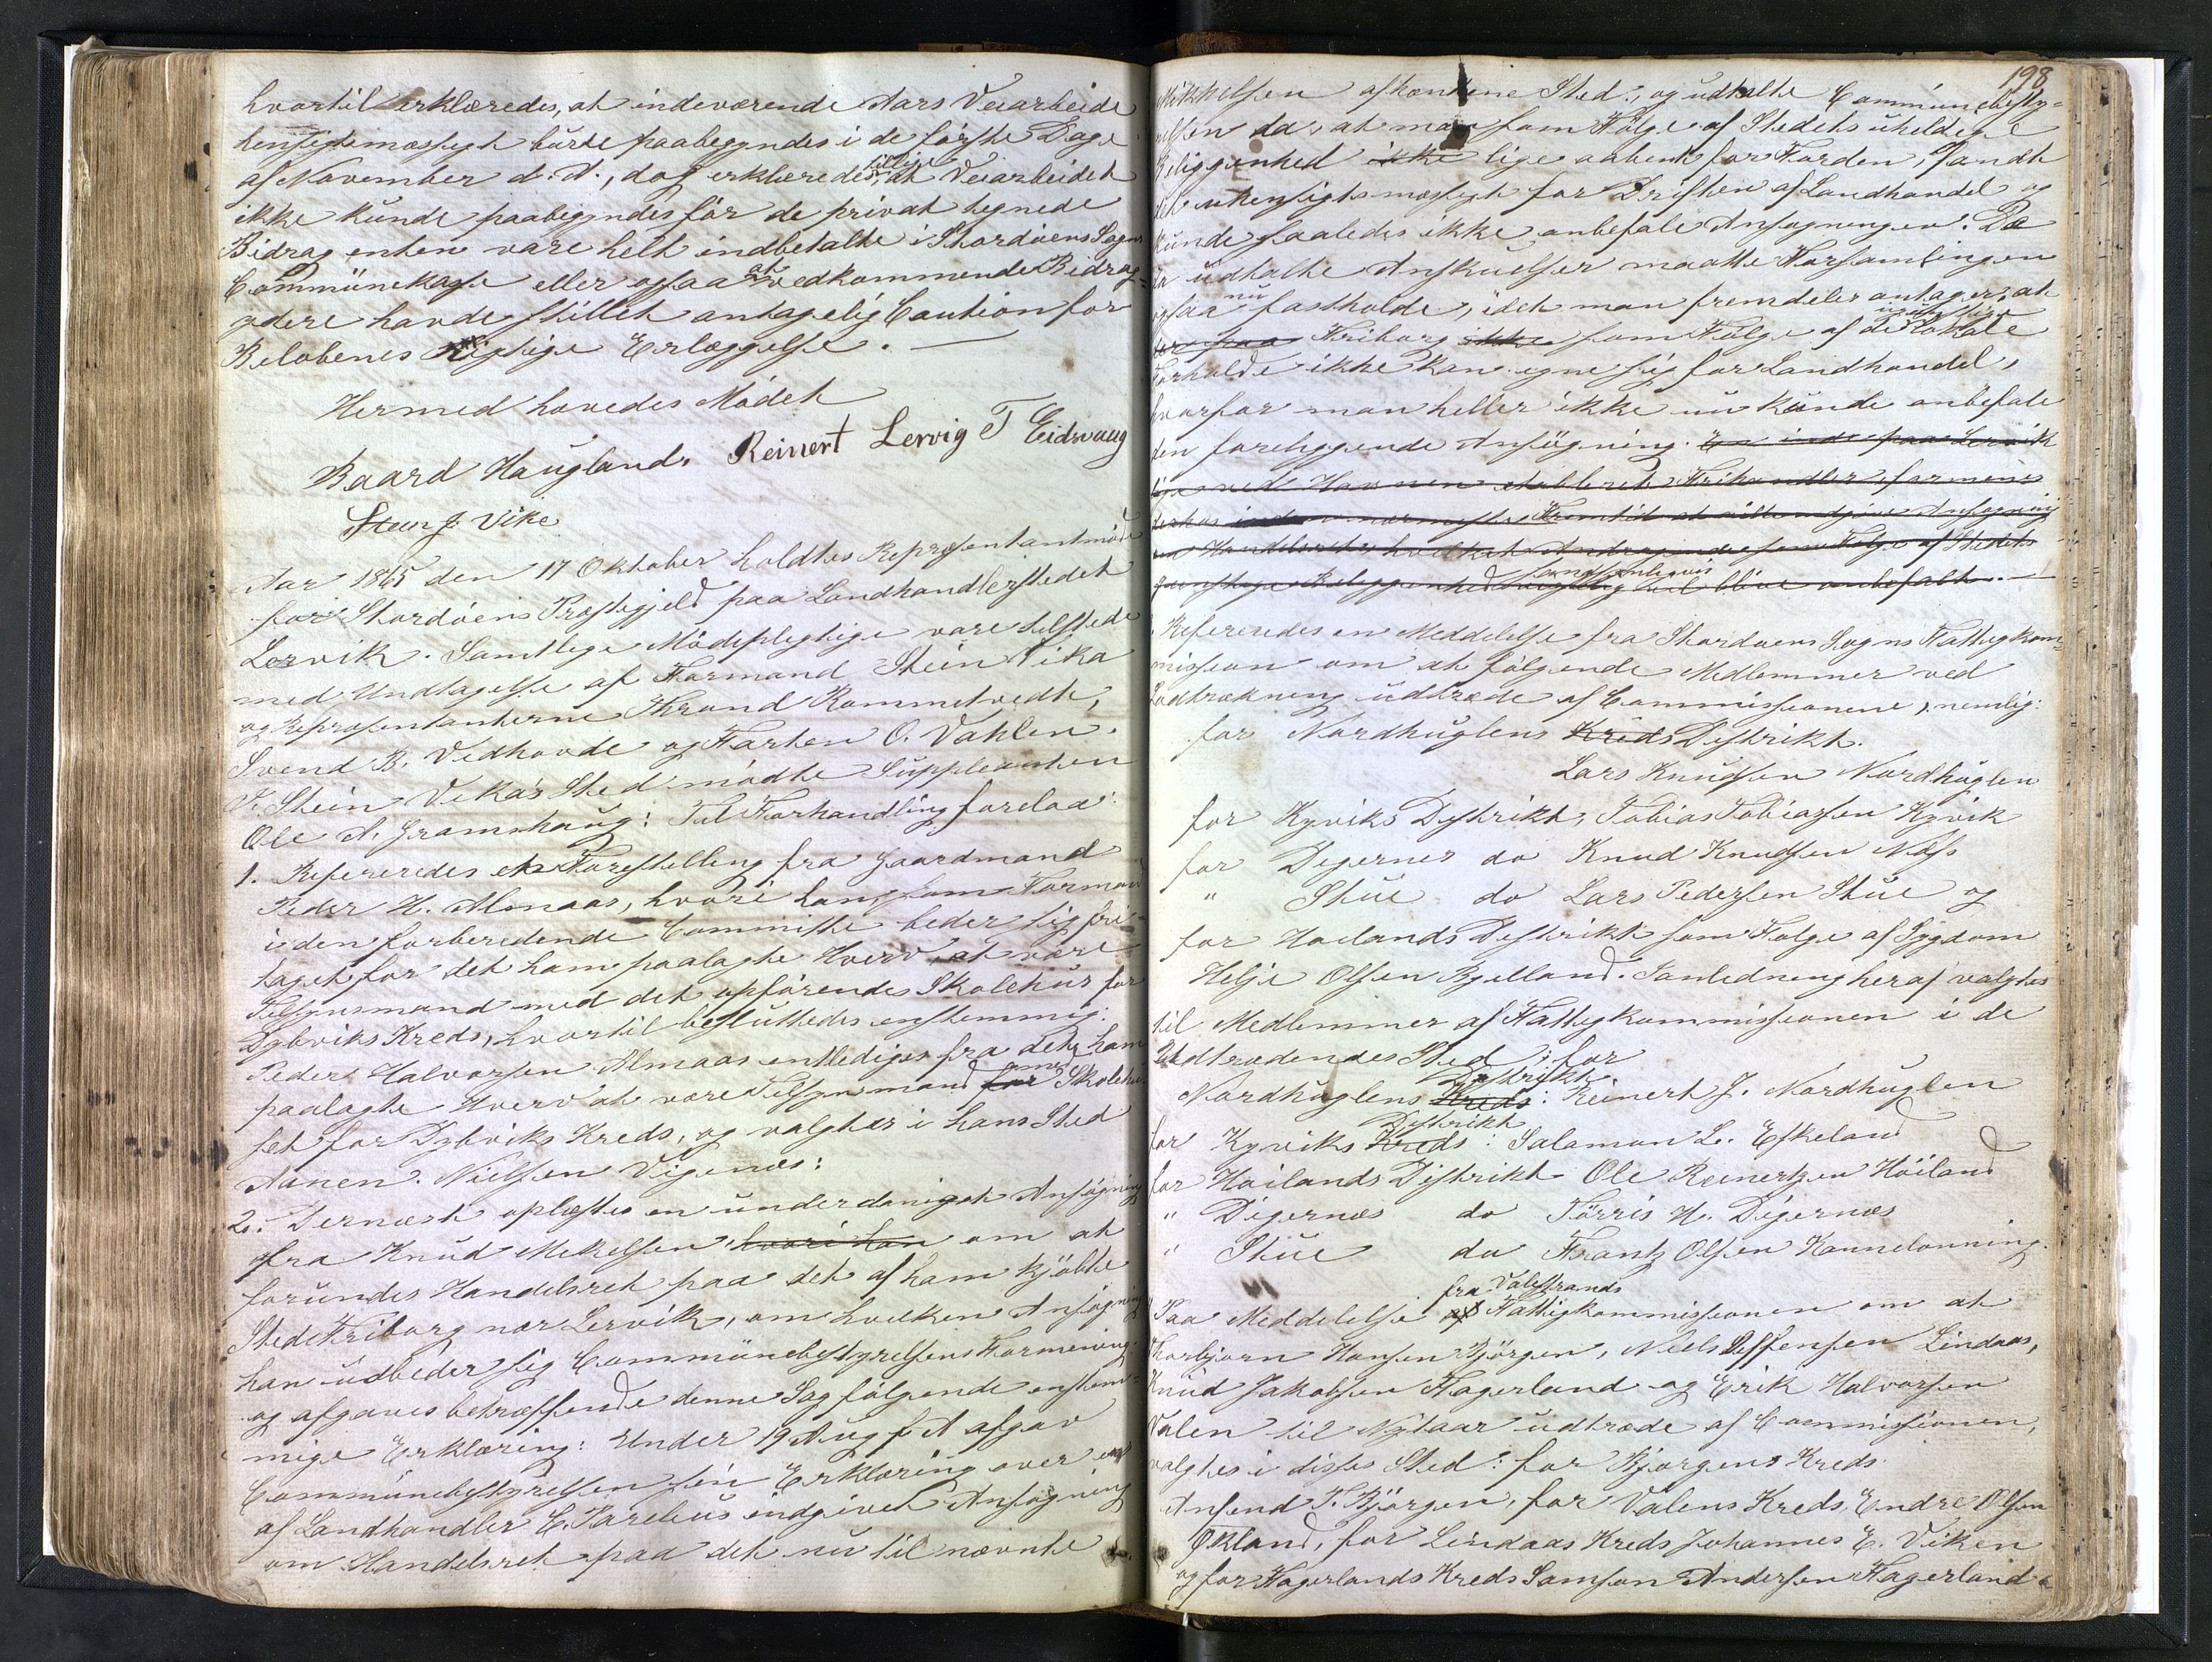 hvortil erklæredes, at indeværende Aars Veiarbeide
hensigtsmæssigt burde paabegyndes i de første Dage
af November d. A., dog erklæredes tillige, at Veiarbeidet
ikke kunde paabegyndes før de privat tegnede
Bidrag enten vare helt indbetalte i Stordøens Sogns
Communekasse eller ogsaa at vedkommende Bidrag-
ydere havde stillet antagelig Caution for
Beløbenes rigtige Erlæggelse. —
Hermed hævedes Mødet
Baard Haugland. Reinert Lervig T Eidsvaag
Stein J. Vike
Aar 1865 den 17 Oktober holdtes Repræsentantmøde
for Stordøens Præstegjeld paa Landhandlerstedet
Lervik. Samtlige Mødepligtige vare tilstede
med Undtagelse af Formand Stein Vika
og Repræsentanterne Thrond Rommetvedt,
Svend B. Vedhovde og Torsten O. Vahlen.
I Stein Vikas Sted mødte Suppleanten
Ole A. Gramshaug: Til Forhandling forelaa:
1. Refereredes et Forestilling fra Gaardmand
Peder H. Almaas, hvori han, som Formand
i den forberedende Committe beder sig fri-
taget for det ham paalagte Hverv, at være
Tilsynsmand med det opførendes Skolehus for
Dybviks Kreds, hvortil besluttedes enstemmig:
Peder Halvorsen Almaas entlediges fra det ham
paalagte Hverv at være Tilsynsmand for med Skolehu-
set for Dybviks Kreds, og valgtes i hans Sted
Aanen Nielsen Vigenæs:
2. Dernæst oplæstes en underdanigst Ansøgning
fra Knud Mikelsen hvori han om at
forundes Handelsret paa det af ham kjøbte
Sted Friborg nær Lervik, om hvilken Ansøgning
han udbeder sig Communebestyrelsens Formening
og afgaves betræffende denne Sag følgende enstem-
mige Erklæring: Under 19 Aug f A afgav
Communebestyrelsen sin Erklæring over en
af Landhandler E. Parelius indgivet Ansøgning
om Handelsret paa det nu til nævnte
198
Mikkelsen afhændene Sted, og udtalte Communebesty-
relsen da, at man som Følge af Stedets uheldige
Beliggenhed ikke lige aabent for Fjorden, fandt
det uhensigtsmæssigt for Driften af Landhandel og
kunde saaledes ikke anbefale Ansøgningen. De
da udtalte Anskuelser maatte Forsamlingen
ogsaa nu fastholde, idet man fremdeles antager, at
Friborg ikke som Følge af de Lokale
Forholde ikke kan egne sig for Landhandel,
hvorfor man heller ikke nu kunde anbefale
den foreliggende Ansøgning. En inde paa Lervik
lige ved Havnen etableret Frihandler formenes
Ansøgning
om Handelsret, hvilket Andragende som Følge af Stedets
gunstige Beliggenhed sandsynligvis vil blive anbefalt. —
Refereredes en Meddelelse fra Stordøens Sogns Fattigkom-
mission om at følgende Medlemmer ved
Lodtrækning udtræde af Commissionene, nemlig:
for Nordhuglens Kreds Distrikt.
Lars Knudsen Nordhuglen
for Kyviks Distrikt, Tobias Tobiassen Kyvik
for Digernes do Knud Knudsen Næss
" Stue do Lars Pedersen Stue og
for Høilands Distrikt som Følge af Sygdom
Helje Olsen Bjelland. I anledning heraf valgtes
til Medlemmer af Fattigkommissionen i de
Udtrædendes Sted: for
Nordhuglens Kreds Distrikt: Reinert J. Nordhuglen
for Kyviks Kreds Distrikt: Salamon L. Eskeland
for Høilands Distrikt Ole Reinertsen Høiland
" Digernæs do Tørris H. Digernæs
" Stue do Frantz Olsen Kannelønning
Paa Meddelelse af fra Valestrands Fattigkommissionen om at
Thorbjørn Hansen Bjørgen, Niels Steffensen Lindaas,
Knud Jakobsen Fagerland og Erik Halvorsen
Valen til Nytaar udtræde af Commissionen,
valgtes i disses Sted: for Bjørgens Kreds
Ansend T. Bjørgen, for Valens Kreds, Endre Olsen
Økland, for Lindaas Kreds Johannes E. Viken
og for Fagerlands Kreds Samson Andersen Fagerland